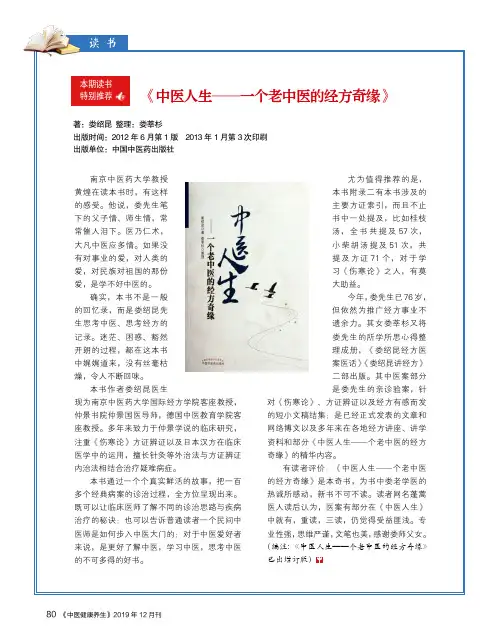 读 书
本期读书
特别推荐
《中医人生——一个老中医的经方奇缘》
著：娄绍昆 整理：娄莘杉
出版时间：2012 年 6 月第 1 版 2013 年 1 月第 3 次印刷
出版单位：中国中医药出版社
南京中医药大学教授
黄煌在读本书时，有这样
的感受。他说，娄先生笔
下的父子情、师生情，常
常催人泪下。医乃仁术，
大凡中医应多情。如果没
有对事业的爱，对人类的
爱，对民族对祖国的那份
爱，是学不好中医的。
确实，本书不是一般
的回忆录，而是娄绍昆先
生思考中医、思考经方的
记录。迷茫、困惑、豁然
开朗的过程，都在这本书
中娓娓道来，没有丝毫枯
燥，令人不断回味。
本书作者娄绍昆医生
现为南京中医药大学国际经方学院客座教授，
仲景书院仲景国医导师，德国中医教育学院客
座教授。多年来致力于仲景学说的临床研究，
注重《伤寒论》方证辨证以及日本汉方在临床
医学中的运用，擅长针灸等外治法与方证辨证
内治法相结合治疗疑难病症。
本书通过一个个真实鲜活的故事，把一百
多个经典病案的诊治过程，全方位呈现出来。
既可以让临床医师了解不同的诊治思路与疾病
治疗的秘诀；也可以告诉普通读者一个民间中
医师是如何步入中医大门的；对于中医爱好者
来说，是更好了解中医，学习中医，思考中医
的不可多得的好书。
中医人生
一个老中医的经方奇缘
尤为值得推荐的是，
本书附录二有本书涉及的
主要方证索引，而且不止
书中一处提及，比如桂枝
汤，全书共提及 57 次，
小柴胡汤提及 51 次，共
提及方证 71 个，对于学
习《伤寒论》之人，有莫
大助益。
今年，娄先生已 76 岁，
但依然为推广经方事业不
遗余力。其女娄莘杉又将
娄先生的所学所思心得整
理成册，《娄绍昆经方医
案医话》《娄绍昆讲经方》
二部出版。其中医案部分
是娄先生的亲诊验案，针
对《伤寒论》、方证辨证以及经方有感而发
的短小文稿结集；是已经正式发表的文章和
网络博文以及多年来在各地经方讲座、讲学
资料和部分《中医人生——一个老中医的经方
奇缘》的精华内容。
有读者评价 《中医人生——一个老中医
的经方奇缘》是本奇书，为书中娄老学医的
热诚所感动，新书不可不读。读者网名蓬蒿
医人读后认为，医案有部分在《中医人生》
中就有，重读，三读，仍觉得受益匪浅。专
业性强，思维严谨，文笔也美，感谢娄师父女。
（编注：《中医人生——一个老中医的经方奇缘》
已出增订版）
80 《中医健康养生》2019 年 12 月刊